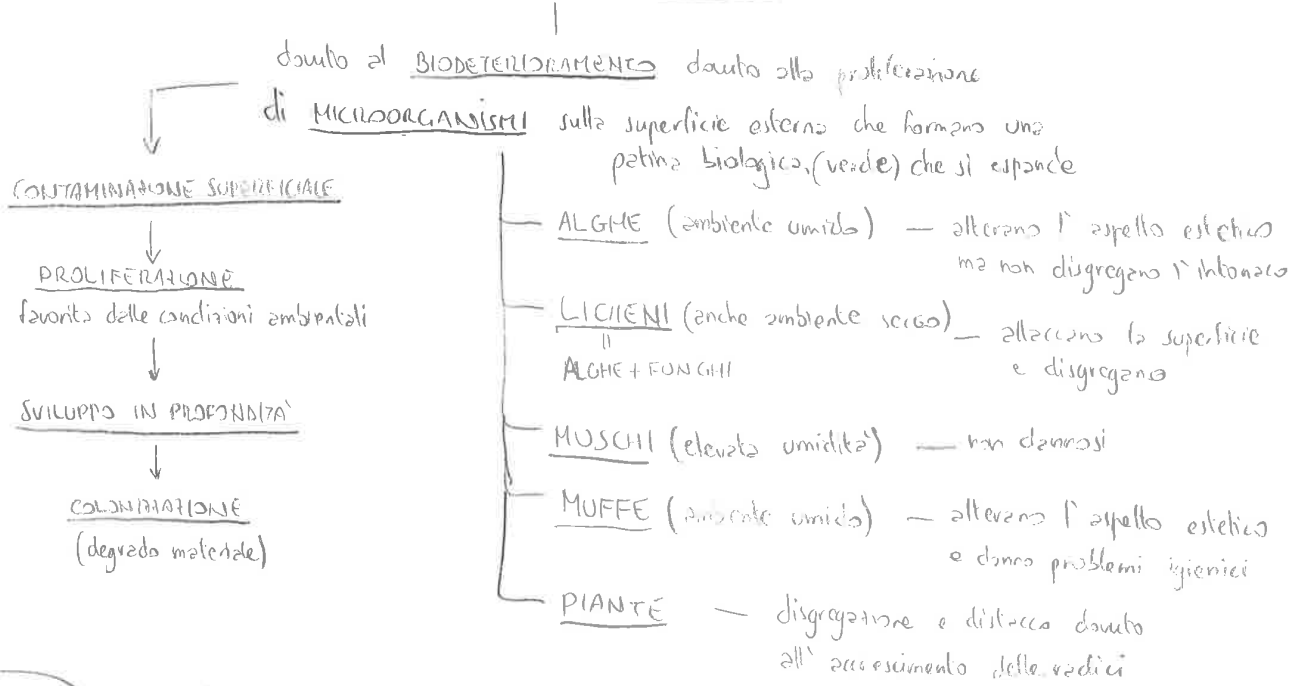 dovuto al BIODETERIORAMENTO dovuto alla proliferazione
di MICROORGANISMI sulla superficie esterna che formano una
patina biologica, (verde) che si espande
CONTAMINAZIONE SUPERFICIALE
PROLIFERAZIONE
favorita dalle condizioni ambientali
SVILUPPO IN PROFONDITA'
COLONIZZAZIONE
(degrado materiale)
ALGHE (ambiente umido) — alterano l'aspetto estetico
ma non disgregano l'intonaco
LICHENI (anche ambiente secco) — attaccano la superficie
e disgregano
ALGHE + FUNGHI
MUSCHI (elevata umidità) — non dannosi
MUFFE (ambiente umido) — alterano l'aspetto estetico
e danno problemi igienici
PIANTE — disgregazione e distacco dovuto
all'accrescimento delle radici